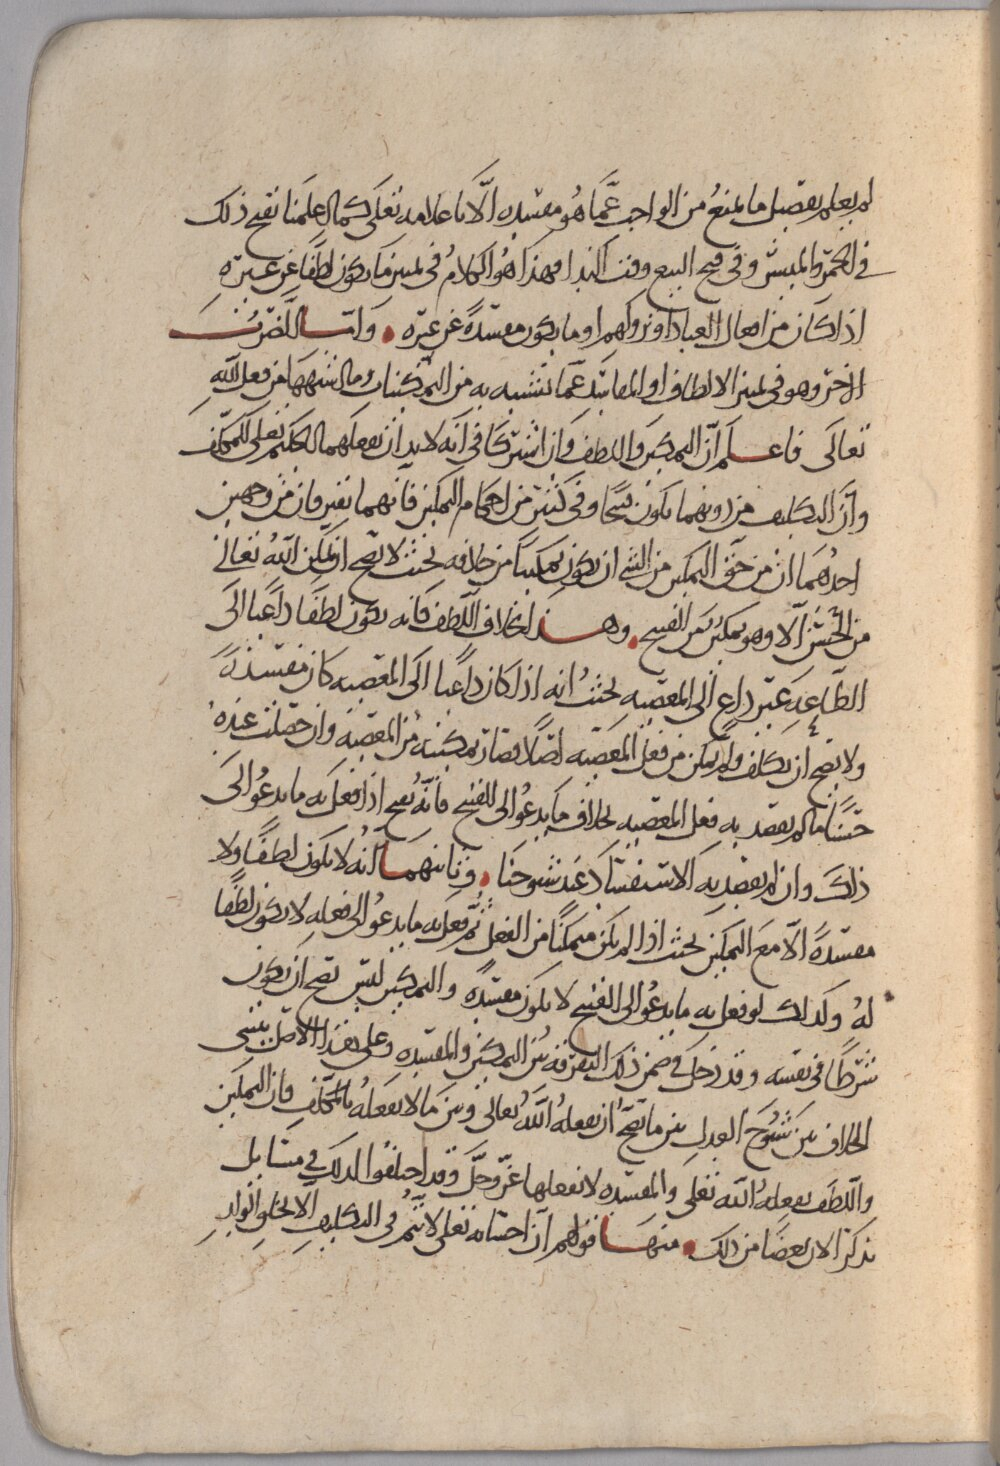 لم يعلم بفصل ما يمنع من الواجب عما هو مفسده الا باعلامه تعالى كمال علمنا بقبح ذلك
في الخمر والميسر وفي قبح البيع وقت الندا فهذا هو الكلام في تميز ما يكون لطفا عن غيره
اذا كان من افعال العباد او تروكهم او ما يكون مفسدة عن غيره واما الضرب
الاخر وهو في تميز الالطاف او المفاسد عما تشتبه به من التمكينات وما شبهها من فعل الله
تعالى فاعلم ان التمكين واللطف وان اشتركا في انه لا بد ان يفعلهما الحكيم تعالى للمكلف
وان التكليف من دونهما يكون قبيحا وفي كثير من احكام التمكين فانهما يفترقان من وجهين
احدهما ان من حق التمكين من الشي ان يكون تمكينا من خلافه بحيث لا يصح ان يمكن الله تعالى
من الحسن الا وهو تمكين من القبيح وهذا بخلاف اللطف فانه يكون لطفا داعيا الى
الطاعه غير داع الى المعصيه بحيث انه اذا كان داعيا الى المعصيه كان مفسدة
ولا يصح ان يكلف ولم يمكن من فعل المعصيه اصلا فصار تمكينه من المعصيه وان حصلت عنده
حسنا ما لم يقصد به فعل المعصيه بخلاف ما يدعو الى القبيح فانه يقبح اذا فعل به ما يدعو الى
ذلك وان لم يقصد به الاستفساد عند شيوخنا وثانيهما انه لا يكون لطفا ولا
مفسدة الا مع التمكين بحيث اذا لم يكن متمكنا من الفعل ثم فعل به ما يدعو الى فعله لا يكون لطفا
له وكذلك لو فعل به ما يدعو الى القبيح لا يكون مفسدة والتمكين ليس يصح ان يكون
شرطا في نفسه وقد دخل في ضمن ذلك التفرقه بين التمكين والمفسده وعلى هذا الاصل ينبني
الخلاف بين شيوخ العدل بين ما يصح ان يفعله الله تعالى وبين ما لا يفعله بالمكلف فان التمكين
واللطف يفعله الله تعالى والمفسده لا يفعلها عز وجل وقد اختلفوا لذلك في مسايل
نذكر الان بعضا من ذلك منها قولهم ان احسانه تعالى لا يتم في التكليف الا بخلق